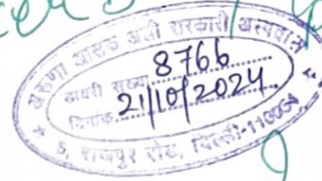 अरुणा आसफ अली सरकारी अस्पताल
डायरी संख्या 8766
दिनांक 21/10/2024
5, राजपुर रोड, दिल्ली-110054